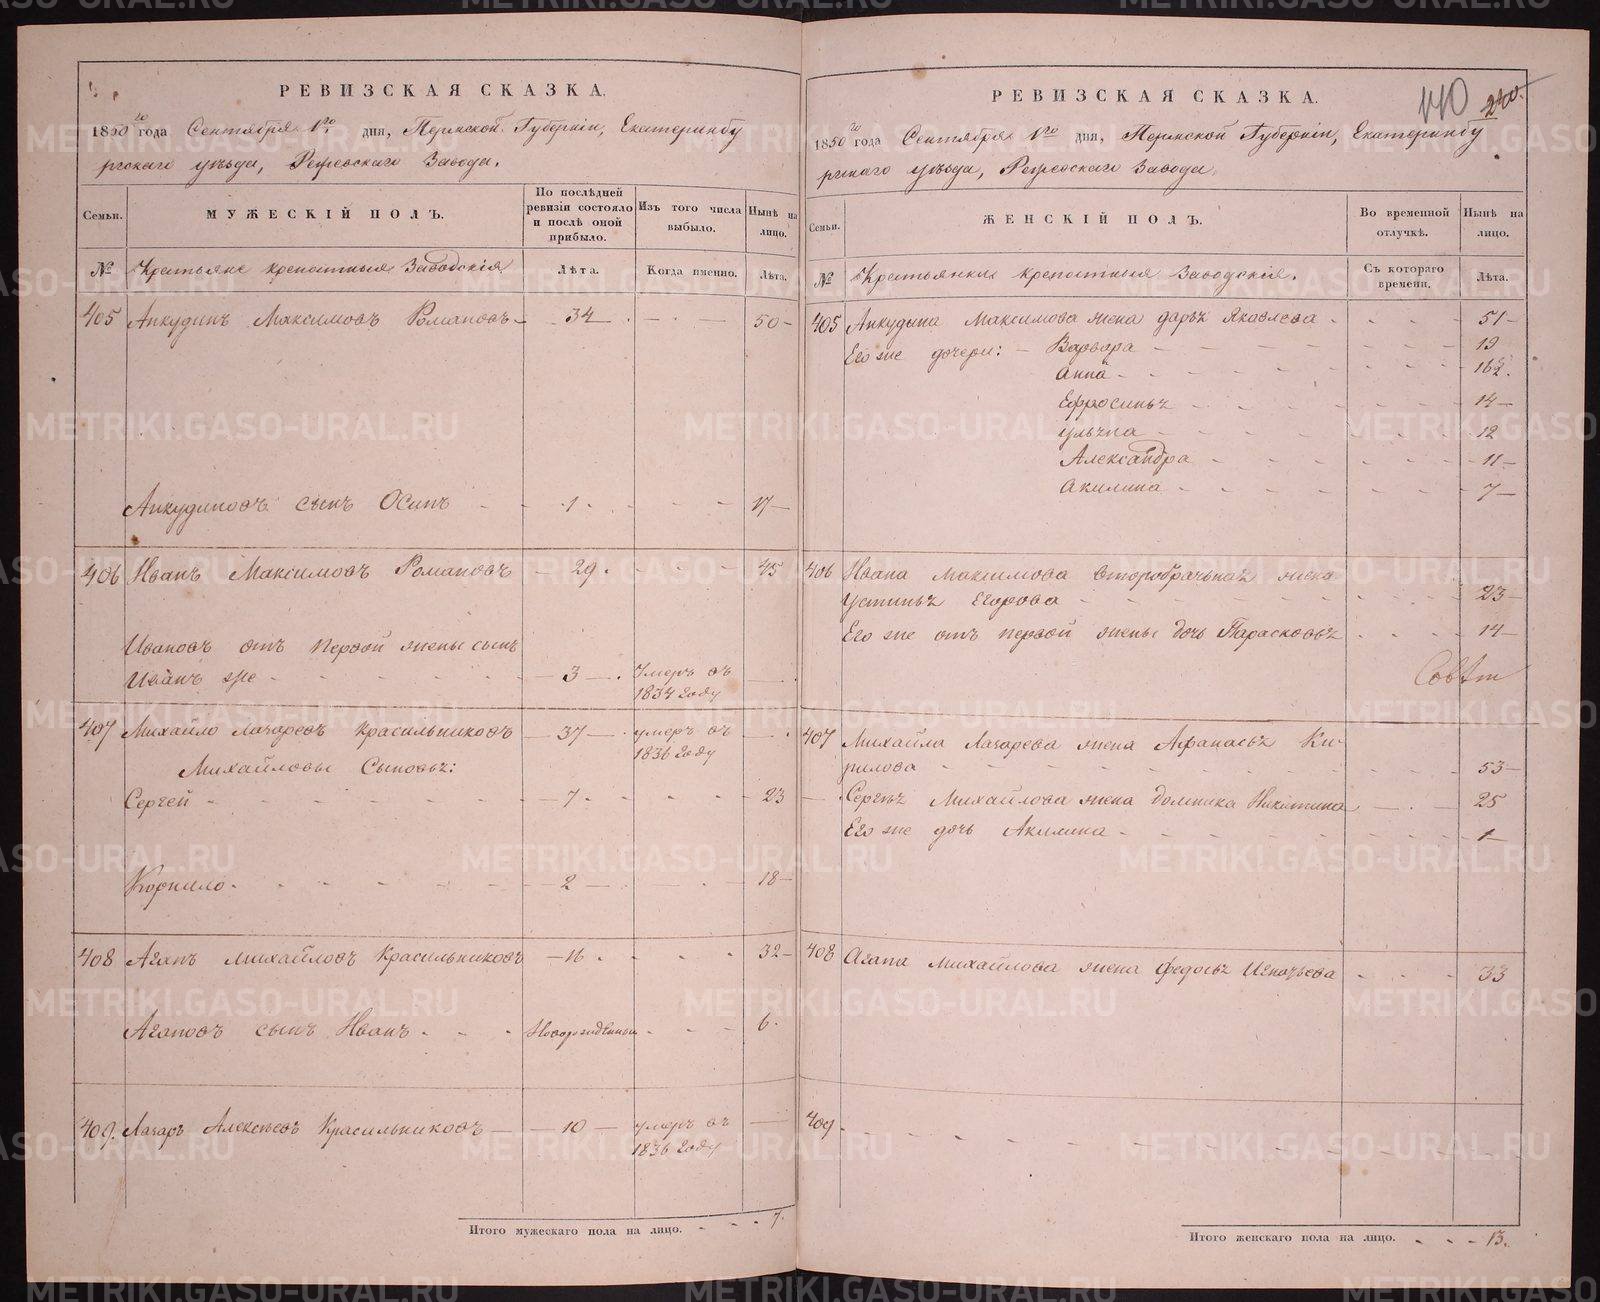 РЕВИЗСКАЯ СКАЗКА.
1850го года Сентября 1го дня, Пермской Губернiи, Екатеринбу
ргскаго уѣзда, Режевскаго Завода.
Семьи.
МУЖЕСКIЙ ПОЛЪ.
По послѣдней ревизiи состояло и послѣ оной прибыло.
Изъ того числа выбыло.
Нынѣ на лицо.
№ Крестьяне крепостныя Заводскiя
Лѣта. Когда именно. Лѣта.
405 Анкудинъ Максимовъ Романовъ 34 50
Анкудиновъ сынъ Осипъ 1 17
406 Иванъ Максимовъ Романовъ 29 45
Ивановъ отъ первой жены сынъ
Иванъ же 3 Умеръ въ
1834 году
407 Михайло Лазаревъ Красильниковъ 37 умеръ въ
1836 году
Михайловы Сыновья:
Сергей 7 23
Корнило 2 18
408 Агапъ Михайловъ Красильниковъ 16 32
Агаповъ сынъ Иванъ Новорожденный 6
409. Лазарь Алексѣевъ Красильниковъ 10 умеръ въ
1836 году
Итого мужескаго пола на лицо. 7.
РЕВИЗСКАЯ СКАЗКА.
110 240.
1850го года Сентября 1го дня, Пермской Губернiи, Екатеринбу
ргскаго уѣзда, Режевскаго Завода.
Семьи.
ЖЕНСКIЙ ПОЛЪ.
Во временной отлучкѣ.
Нынѣ на лицо.
№ Крестьянки крепостныя Заводскiя.
Съ котораго времени. Лѣта.
405 Анкудина Максимова жена Дарья Яковлева 51
Его же дочери: Варвара 19
Анна 16½.
Ефросинья 14
Ульяна 12
Александра 11
Акилина 7
406 Ивана Максимова второбрачная жена
Устинья Егорова 23
Его же отъ первой жены дочь Парасковья 14
407 Михайла Лазарева жена Афанасья Ки-
рилова 53
Сергея Михайлова жена Домника Никитина 25
Его же дочь Акилина 1
408 Агапа Михайлова жена Федосья Игнатьева 33
409
Итого женскаго пола на лицо. 13.
METRIKI.GASO-URAL.RU